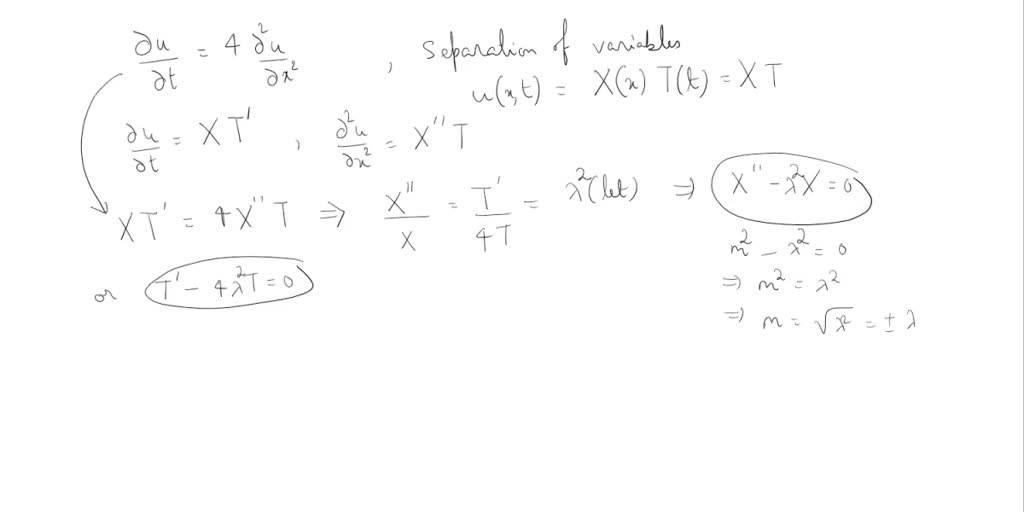 ∂u/∂t = 4 ∂²u/∂x² , Separation of variables
u(x,t) = X(x) T(t) = XT
∂u/∂t = XT' , ∂²u/∂x² = X''T
XT' = 4X''T ⇒ X''/X = T'/4T = λ² (let) ⇒ X'' - λ²X = 0
m² - λ² = 0
or T' - 4λ²T = 0
⇒ m² = λ²
⇒ m = √λ² = ± λ